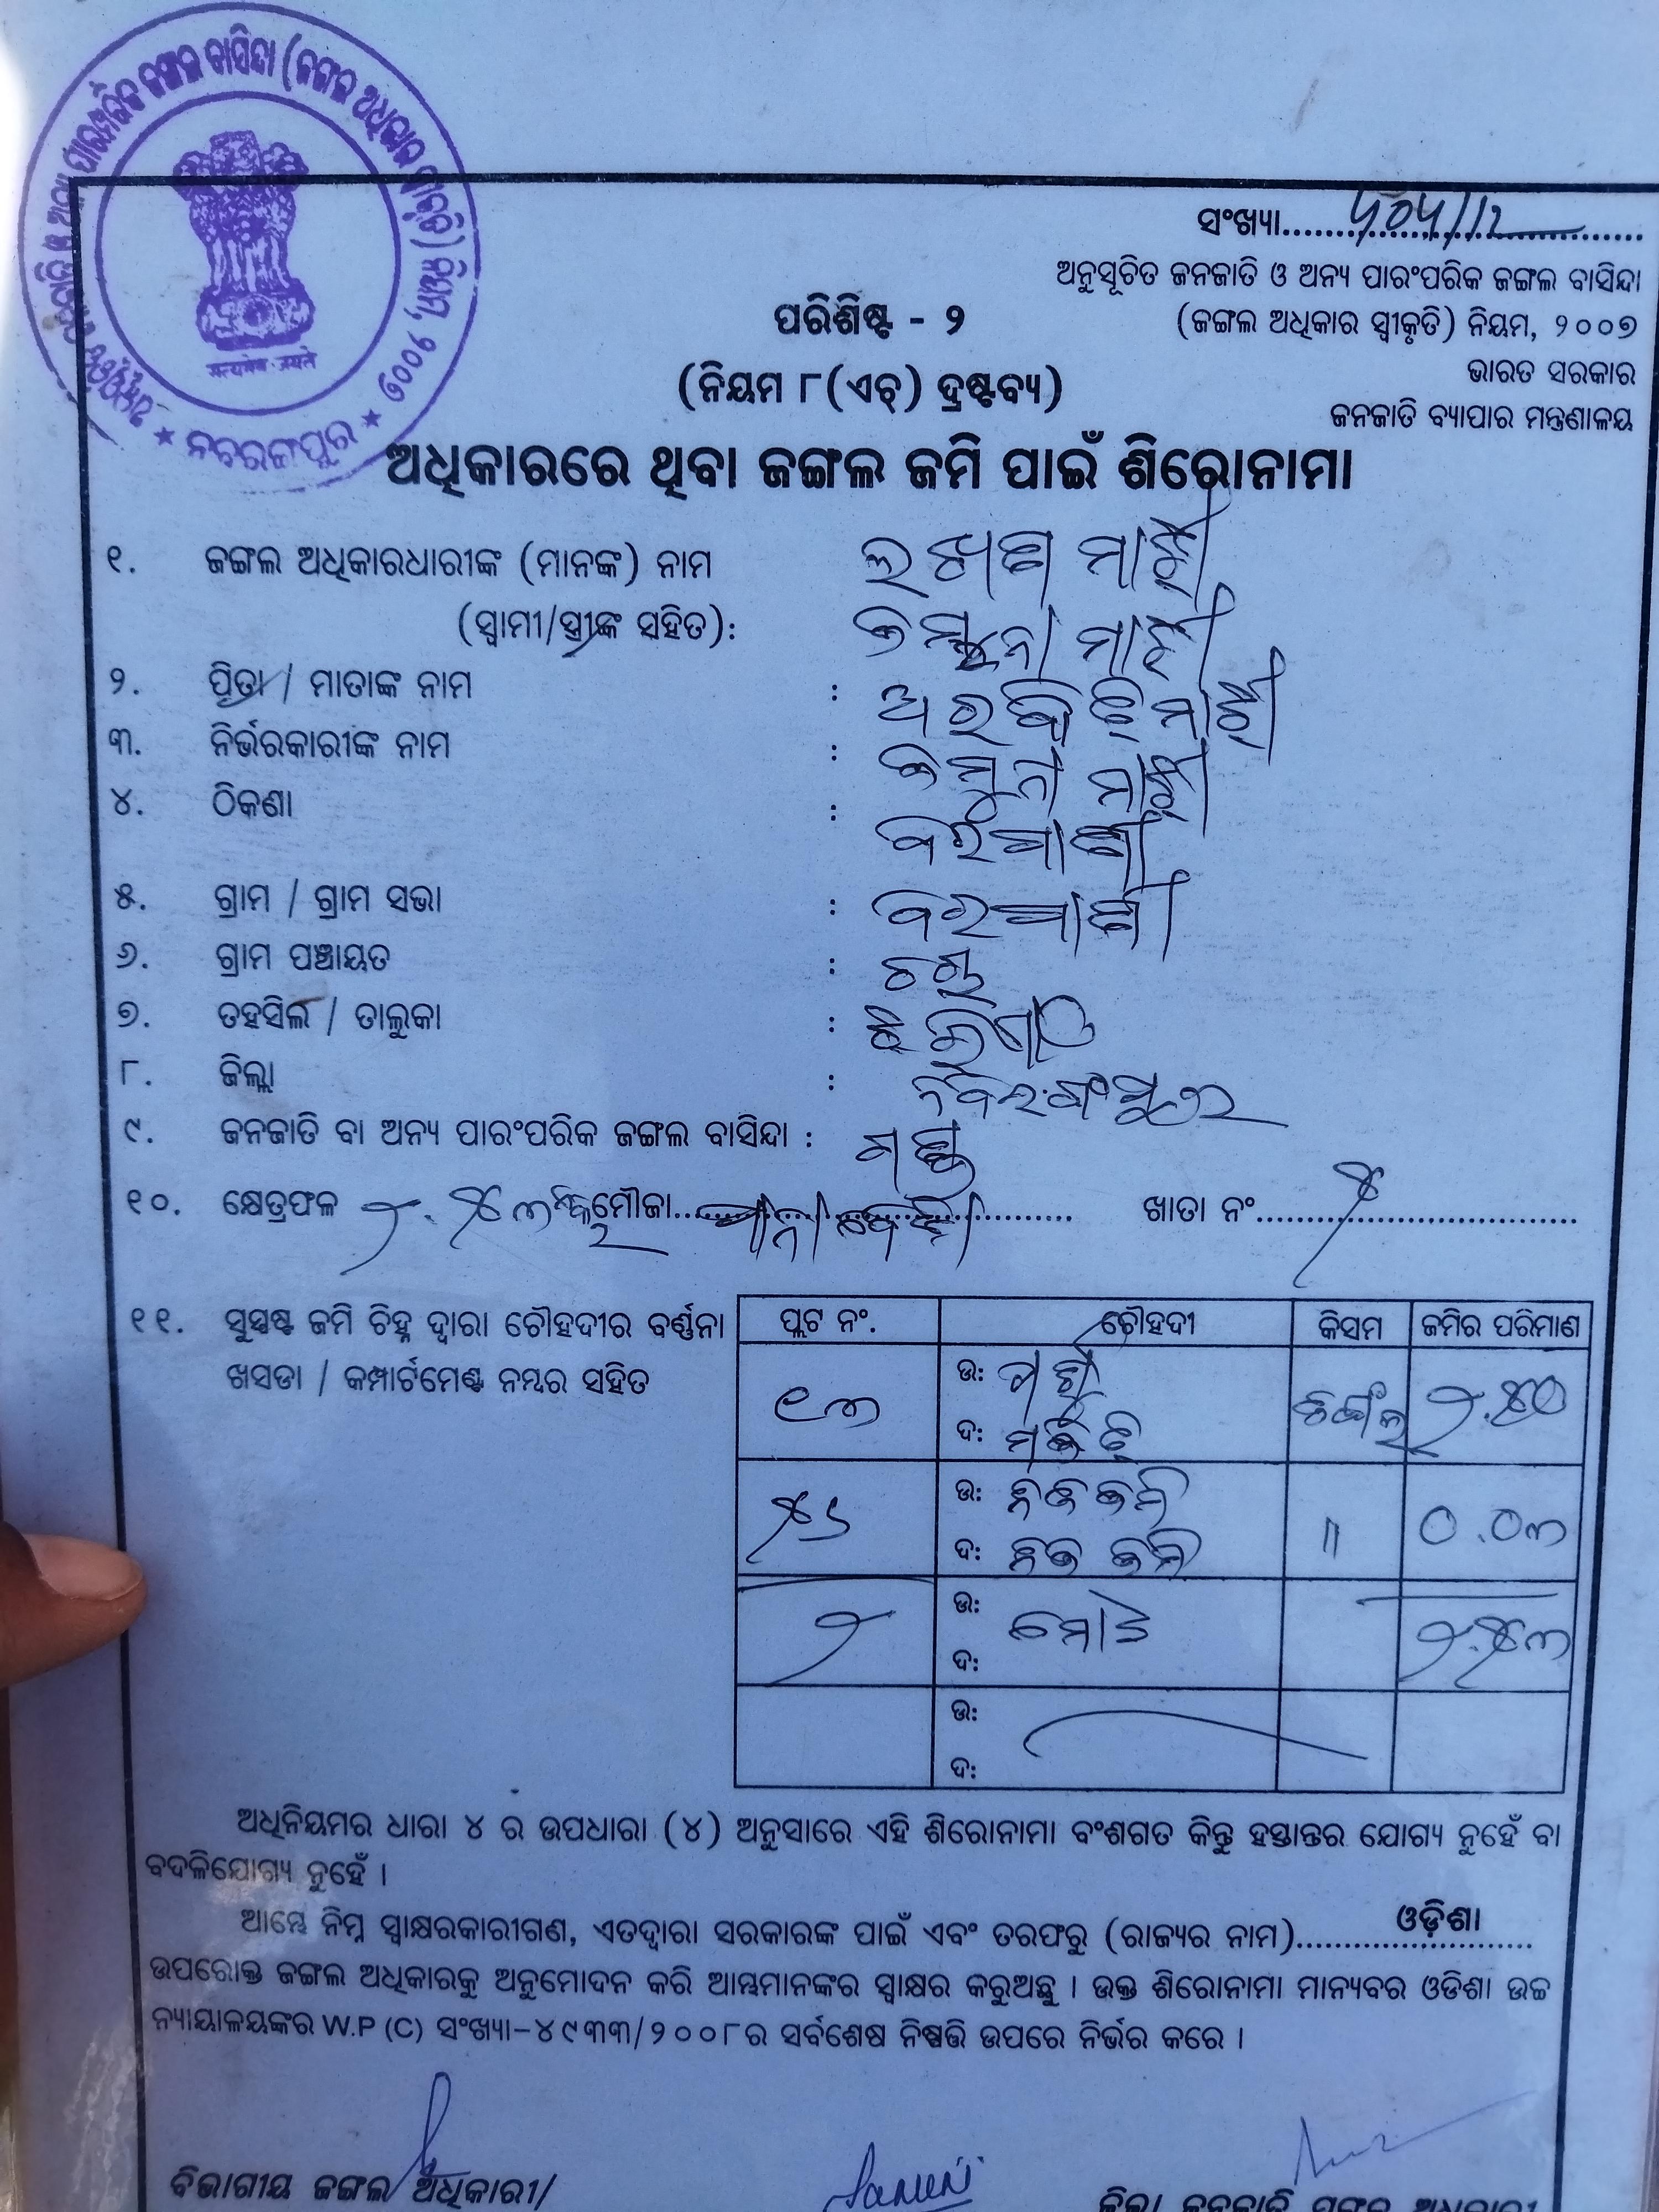 ସଂଖ୍ୟା
ଅନୁସୂଚିତ ଜନଜାତି ଓ ଅନ୍ୟ ପାରଂପରିକ ଜଙ୍ଗଲ ବାସିନ୍ଦା
(ଜଙ୍ଗଲ ଅଧିକାର ସ୍ୱୀକୃତି) ନିୟମ, ୨୦୦୭
ଭାରତ ସରକାର
ଜନଜାତି ବ୍ୟାପାର ମନ୍ତ୍ରଣାଳୟ
सत्यमेव जयते
ନବରଙ୍ଗପୁର
ପରିଶିଷ୍ଟ - ୨
(ନିୟମ ୮(ଏଚ୍) ଦ୍ରଷ୍ଟବ୍ୟ)
ଅଧିକାରରେ ଥିବା ଜଙ୍ଗଲ ଜମି ପାଇଁ ଶିରୋନାମା
୧. ଜଙ୍ଗଲ ଅଧିକାରଧାରୀଙ୍କ (ମାନଙ୍କ) ନାମ ମାଝୀ
(ସ୍ୱାମୀ/ସ୍ତ୍ରୀଙ୍କ ସହିତ): ମାଝୀ
୨. ପିତା / ମାତାଙ୍କ ନାମ : ମାଝୀ
୩. ନିର୍ଭରକାରୀଙ୍କ ନାମ : ମାଝୀ
୪. ଠିକଣା :
୫. ଗ୍ରାମ / ଗ୍ରାମ ସଭା :
୬. ଗ୍ରାମ ପଞ୍ଚାୟତ :
୭. ତହସିଲ / ତାଲୁକା : ଝରିଗାଁ
୮. ଜିଲ୍ଲା : ନବରଂଙ୍ଗପୁର
୯. ଜନଜାତି ବା ଅନ୍ୟ ପାରଂପରିକ ଜଙ୍ଗଲ ବାସିନ୍ଦା : ଗଣ୍ଡ
୧୦. କ୍ଷେତ୍ରଫଳ ୨.୫୩ ମୌଜା ଖାତା ନଂ ୫
୧୧. ସୁସ୍ପଷ୍ଟ ଜମି ଚିହ୍ନ ଦ୍ୱାରା ଚୌହଦୀର ବର୍ଣ୍ଣନା
ଖସଡା / କମ୍ପାର୍ଟମେଣ୍ଟ ନମ୍ବର ସହିତ
ପ୍ଲଟ ନଂ. ଚୌହଦୀ କିସମ ଜମିର ପରିମାଣ
୯୩ ଉ: ଜଙ୍ଗଲ ୨.୫୦
ଦ:
ଉ: ନିଜ ଜମି " ୦.୦୩
ଦ: ନିଜ ଜମି
୨ ଉ: ମୋଟ ୨.୫୩
ଦ:
ଉ:
ଦ:
ଅଧିନିୟମର ଧାରା ୪ ର ଉପଧାରା (୪) ଅନୁସାରେ ଏହି ଶିରୋନାମା ବଂଶଗତ କିନ୍ତୁ ହସ୍ତାନ୍ତର ଯୋଗ୍ୟ ନୁହେଁ ବା
ବଦଳିଯୋଗ୍ୟ ନୁହେଁ ।
ଆମ୍ଭେ ନିମ୍ନ ସ୍ୱାକ୍ଷରକାରୀଗଣ, ଏତଦ୍ୱାରା ସରକାରଙ୍କ ପାଇଁ ଏବଂ ତରଫରୁ (ରାଜ୍ୟର ନାମ) ଓଡ଼ିଶା
ଉପରୋକ୍ତ ଜଙ୍ଗଲ ଅଧିକାରକୁ ଅନୁମୋଦନ କରି ଆମ୍ଭମାନଙ୍କର ସ୍ୱାକ୍ଷର କରୁଅଛୁ । ଉକ୍ତ ଶିରୋନାମା ମାନ୍ୟବର ଓଡିଶା ଉଚ୍ଚ
ନ୍ୟାୟାଳୟଙ୍କର W.P (C) ସଂଖ୍ୟା-୪୯୩୩/୨୦୦୮ର ସର୍ବଶେଷ ନିଷ୍ପତ୍ତି ଉପରେ ନିର୍ଭର କରେ ।
ବିଭାଗୀୟ ଜଙ୍ଗଲ ଅଧିକାରୀ/